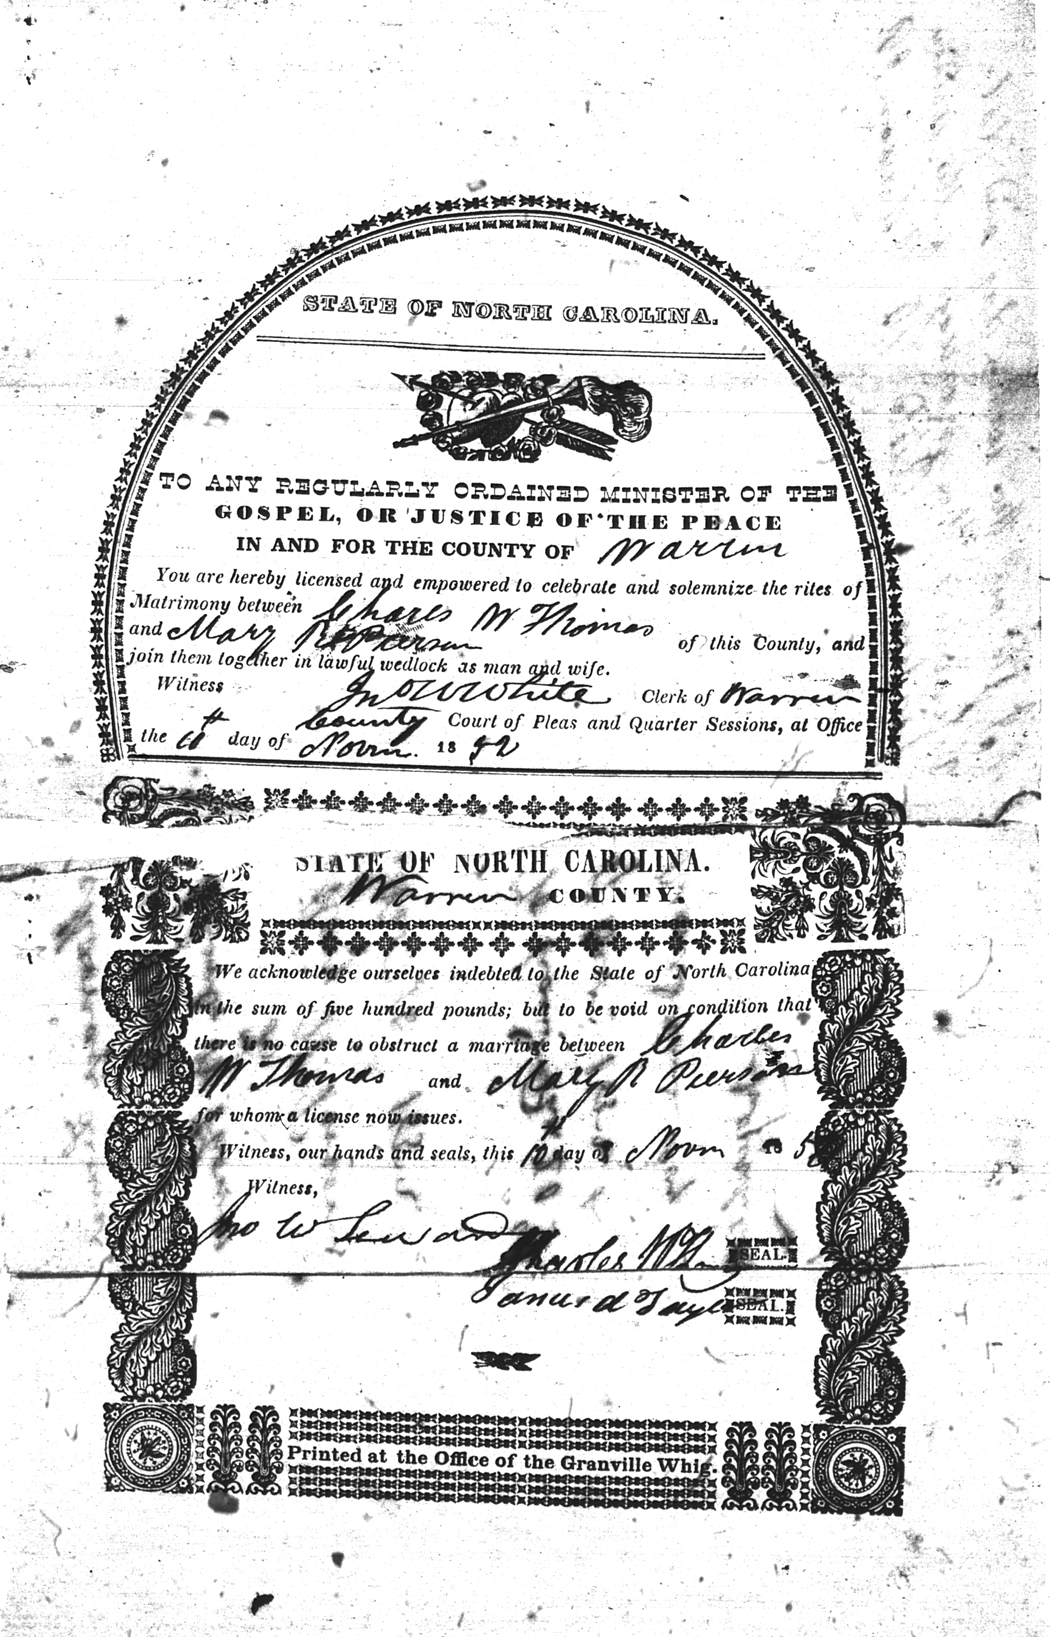 STATE OF NORTH CAROLINA.
TO ANY REGULARLY ORDAINED MINISTER OF THE
GOSPEL, OR JUSTICE OF THE PEACE
IN AND FOR THE COUNTY OF Warren
You are hereby licensed and empowered to celebrate and solemnize the rites of
Matrimony between Chares W Thomas
and Mary R Pierson of this County, and
join them together in lawful wedlock as man and wife.
Witness Jno W White Clerk of Warren
County Court of Pleas and Quarter Sessions, at Office
the day of Novm. 1852
STATE OF NORTH CAROLINA.
Warren COUNTY.
We acknowledge ourselves indebted to the State of North Carolina
in the sum of five hundred pounds; but to be void on condition that
there is no cause to obstruct a marriage between Charles
W Thomas and Mary R Pierson
for whom a license now issues.
Witness, our hands and seals, this 10th day of Novm 185
Witness,
Jno W Charles W SEAL.
SEAL.
Printed at the Office of the Granville Whig.